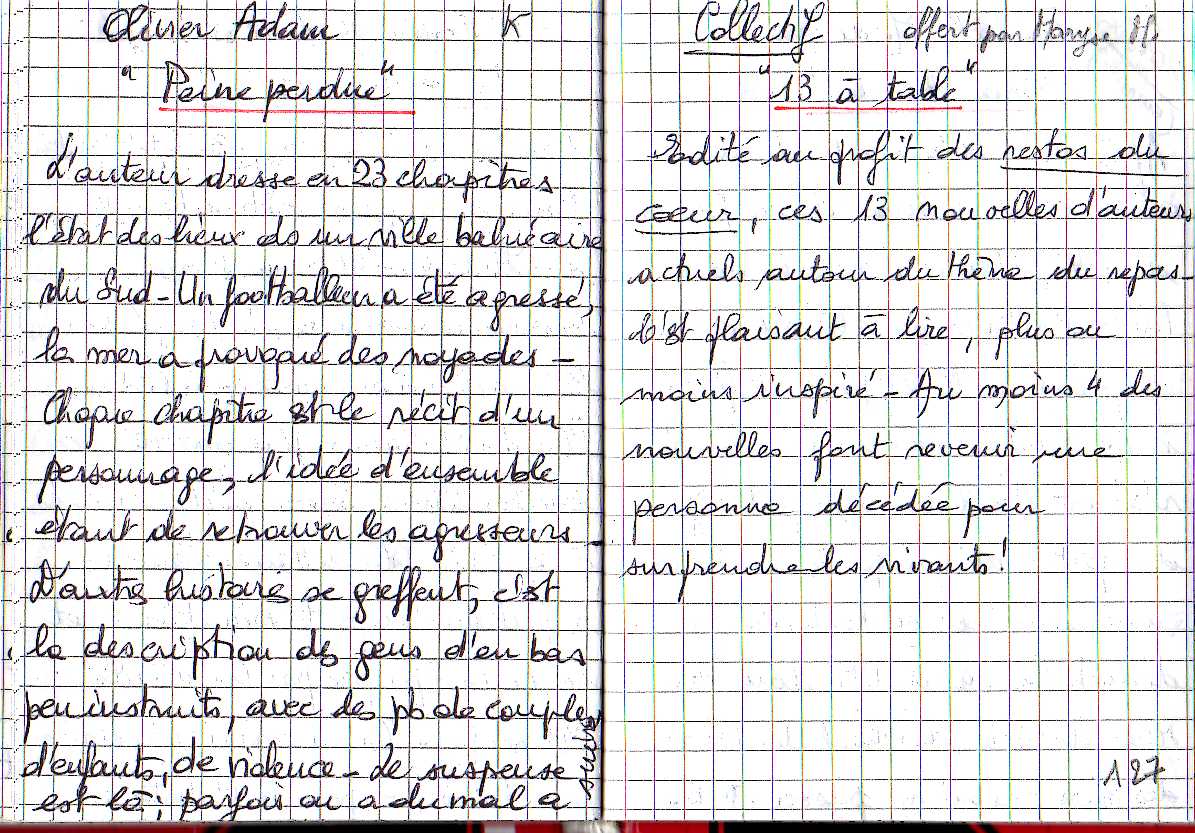 Olivier Adam K
"Peine perdue"
L'auteur dresse en 23 chapîtres
l'état des lieux ds un ville balnéaire
du Sud - Un footballeur a été agressé,
la mer a provoqué des noyades -
Chaque chapître est le récit d'un
personnage, l'idée d'ensemble
étant de retrouver les agresseurs -
D'autres histoires se greffent, c'est
la description des gens d'en bas
peu instruits, avec des pb de couples
d'enfants, de violence - Le suspense
est là ; parfois on a du mal à
suivre
Collectif offert par Maryse H.
"13 à table"
Edité au profit des restos du
coeur, ces 13 nouvelles d'auteurs
actuels autour du thème du repas -
C'est plaisant à lire, plus ou
moins inspiré - Au moins 4 des
nouvelles font revenir une
personne décédée pour
surprendre les vivants !
127